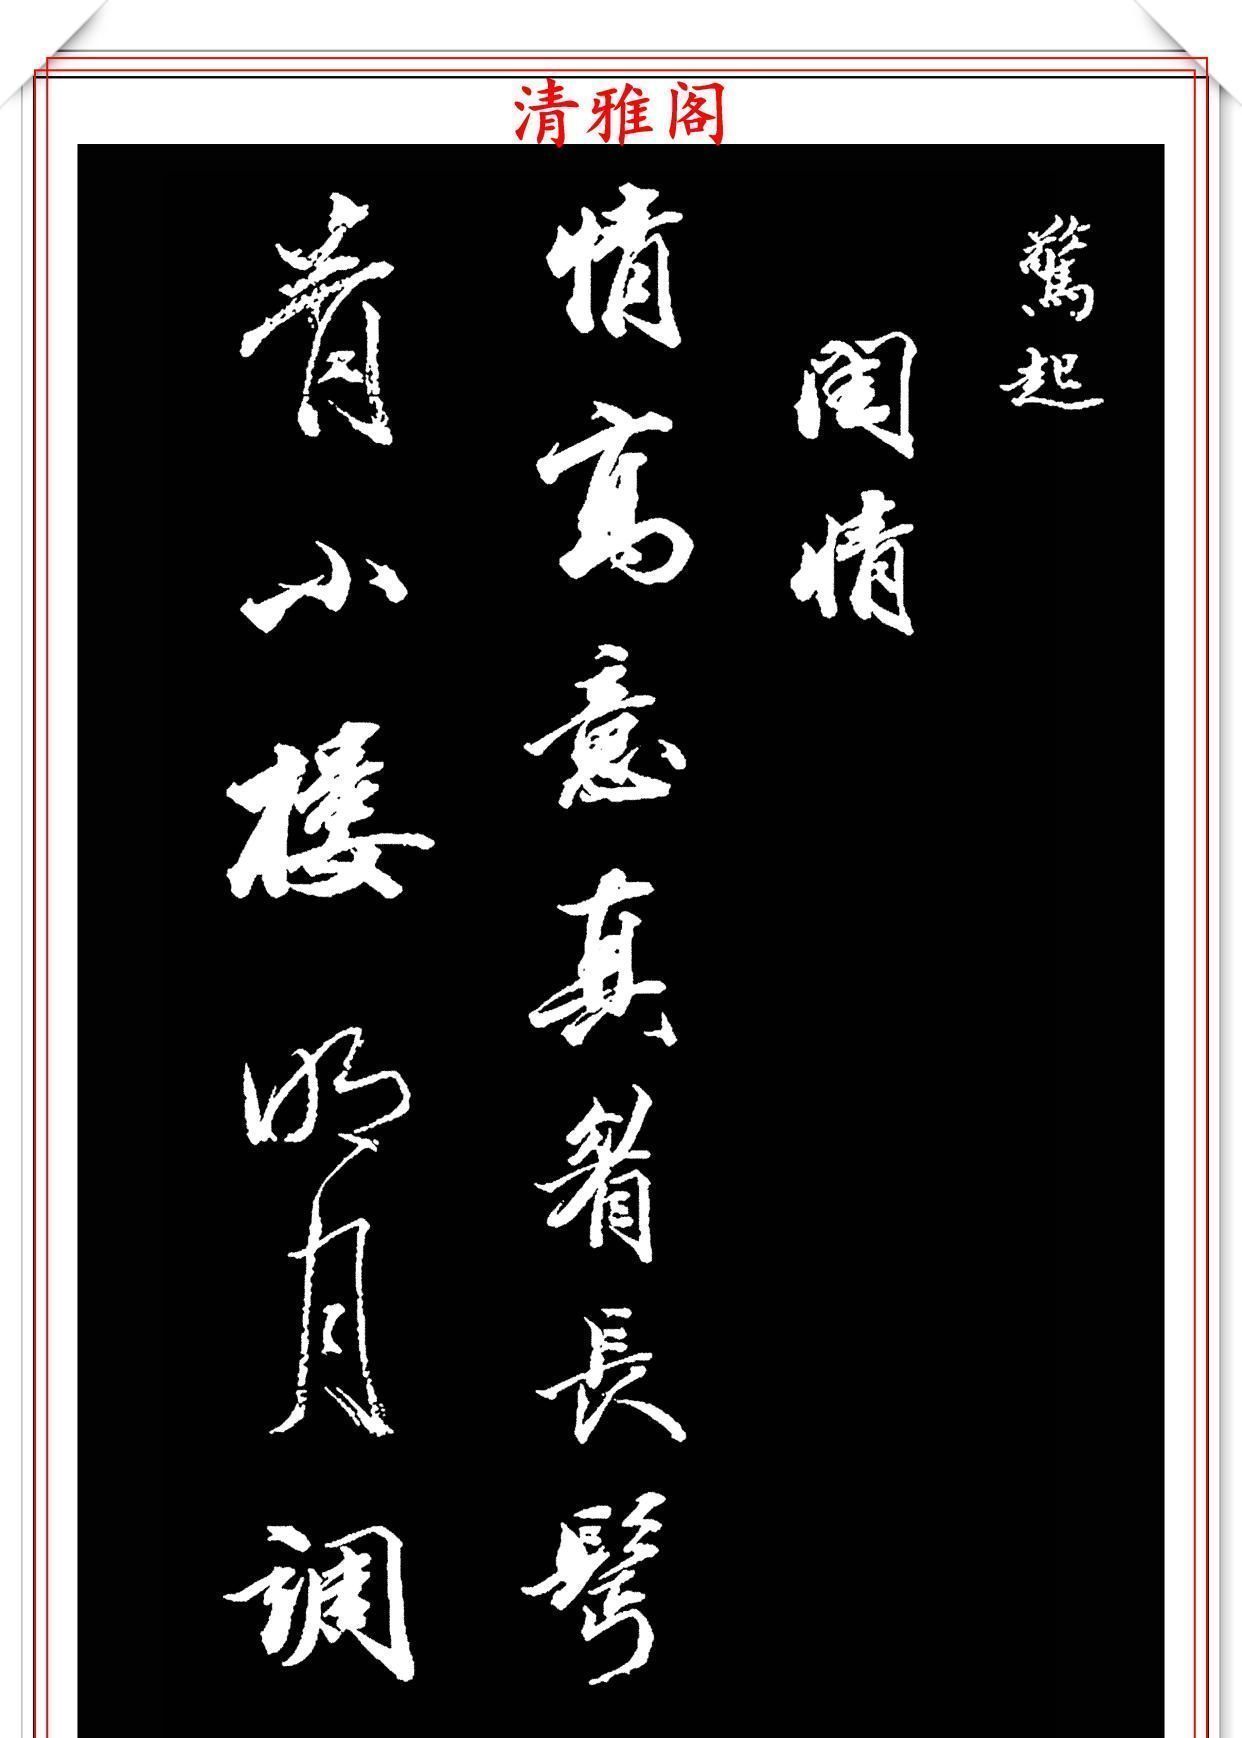 清雅阁
驚起
閨情
情高意真眉長鬢
青小樓明月調